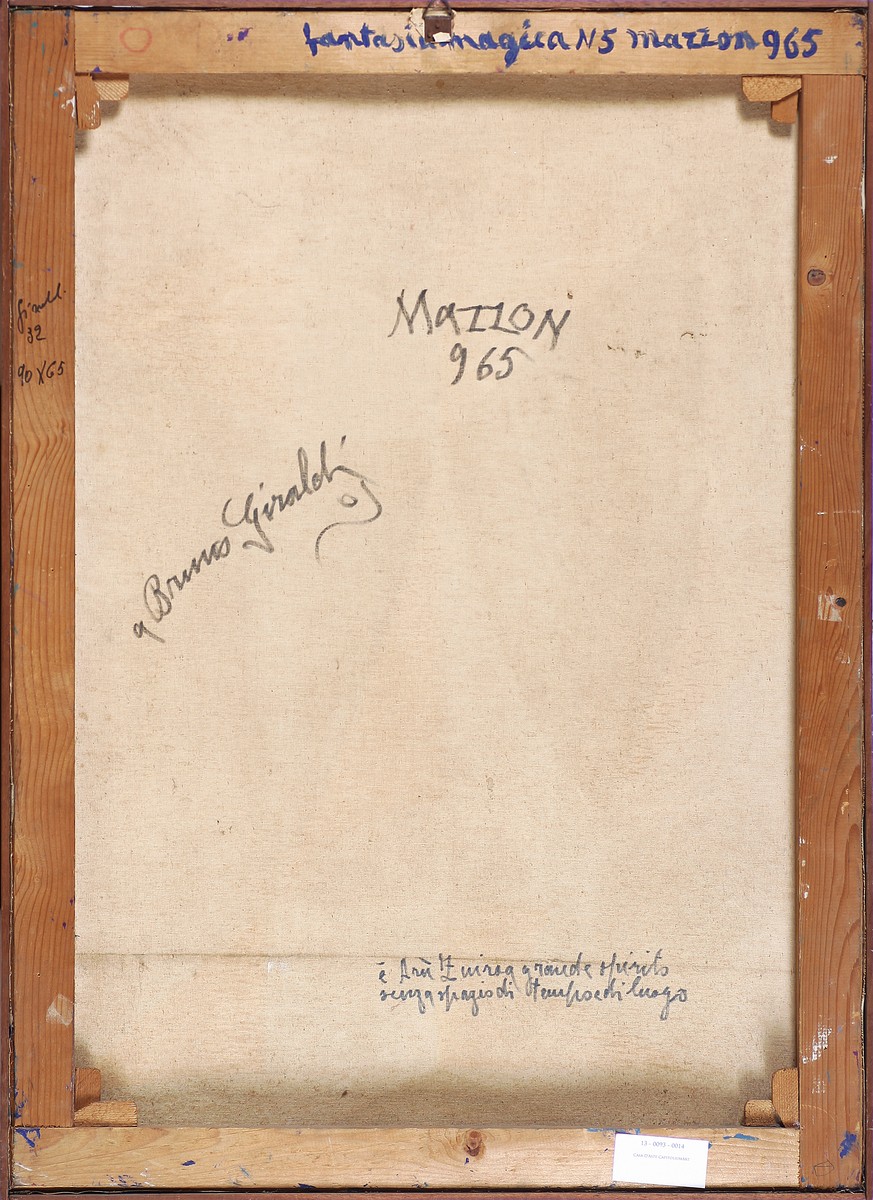 fantasia magica N5 Mazzon 965
32
90 X 65
MAZZON
965
a Bruno Giraldi
è Arù grande spirito
senza spazio di tempo e di luogo
13 - 0093 - 0014